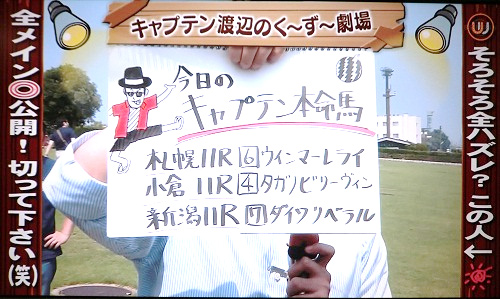 キャプテン渡辺のく～ず～劇場
全メイン◎公開！切って下さい(笑)
そろそろ全ハズレ？この人←
今日の
キャプテン本命馬
札幌11R 6 ウインマーレライ
小倉11R 4 タガノビリーヴィン
新潟11R 17 ダイワリベラル